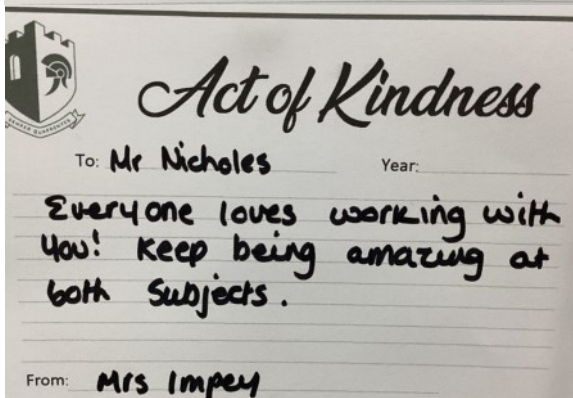 Act of Kindness
To: Mr Nicholes Year:
Everyone loves working with
you! Keep being amazing at
both subjects.
From: Mrs Impey